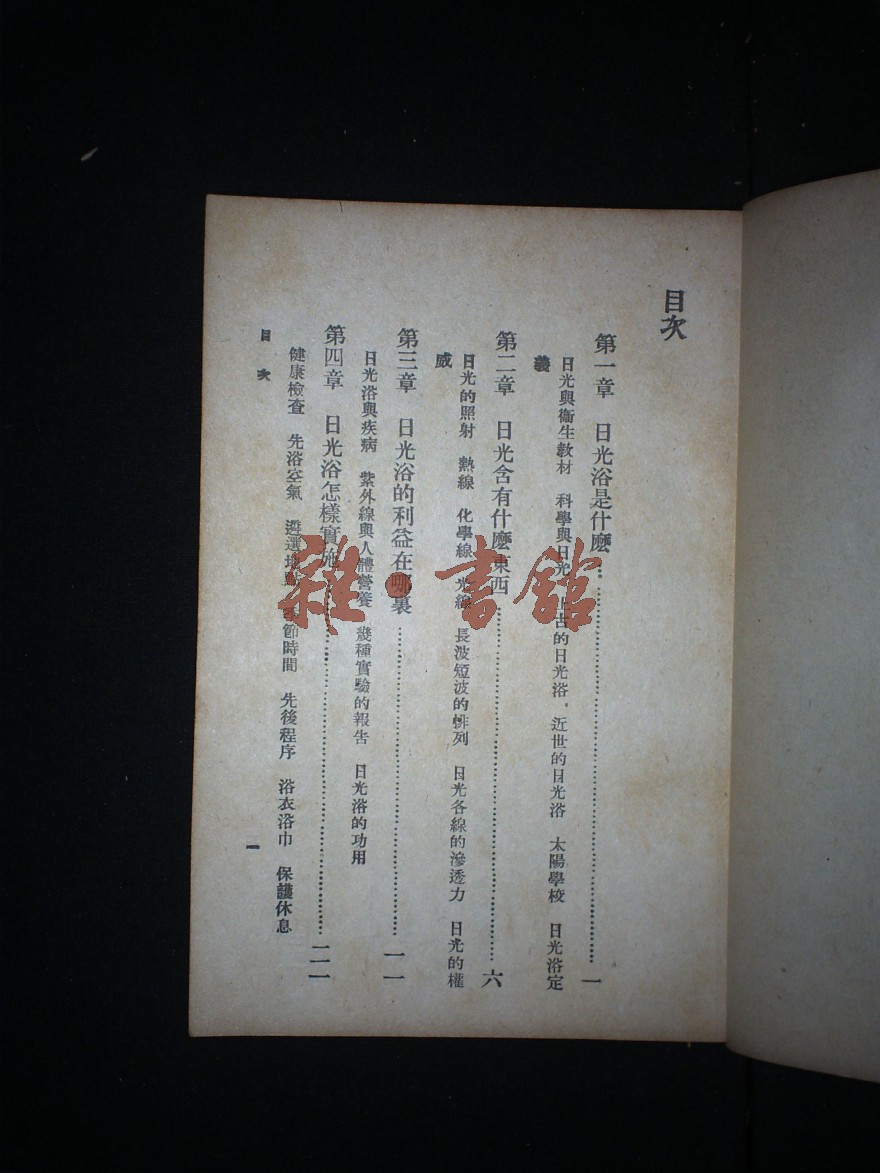 目次
第一章　日光浴是什麽……一
日光與衞生教材　科學與日光　上古的日光浴．近世的日光浴　太陽學校　日光浴定
義
第二章　日光含有什麽東西……六
日光的照射　熱線　化學線　光線　長波短波的排列　日光各線的滲透力　日光的權
威
第三章　日光浴的利益在哪裏……一一
日光浴與疾病　紫外線與人體營養　幾種實驗的報告　日光浴的功用
第四章　日光浴怎樣實施……二一
健康檢查　先浴空氣　遴選地點　季節時間　先後程序　浴衣浴巾　保護休息
目次
一
雜·書館